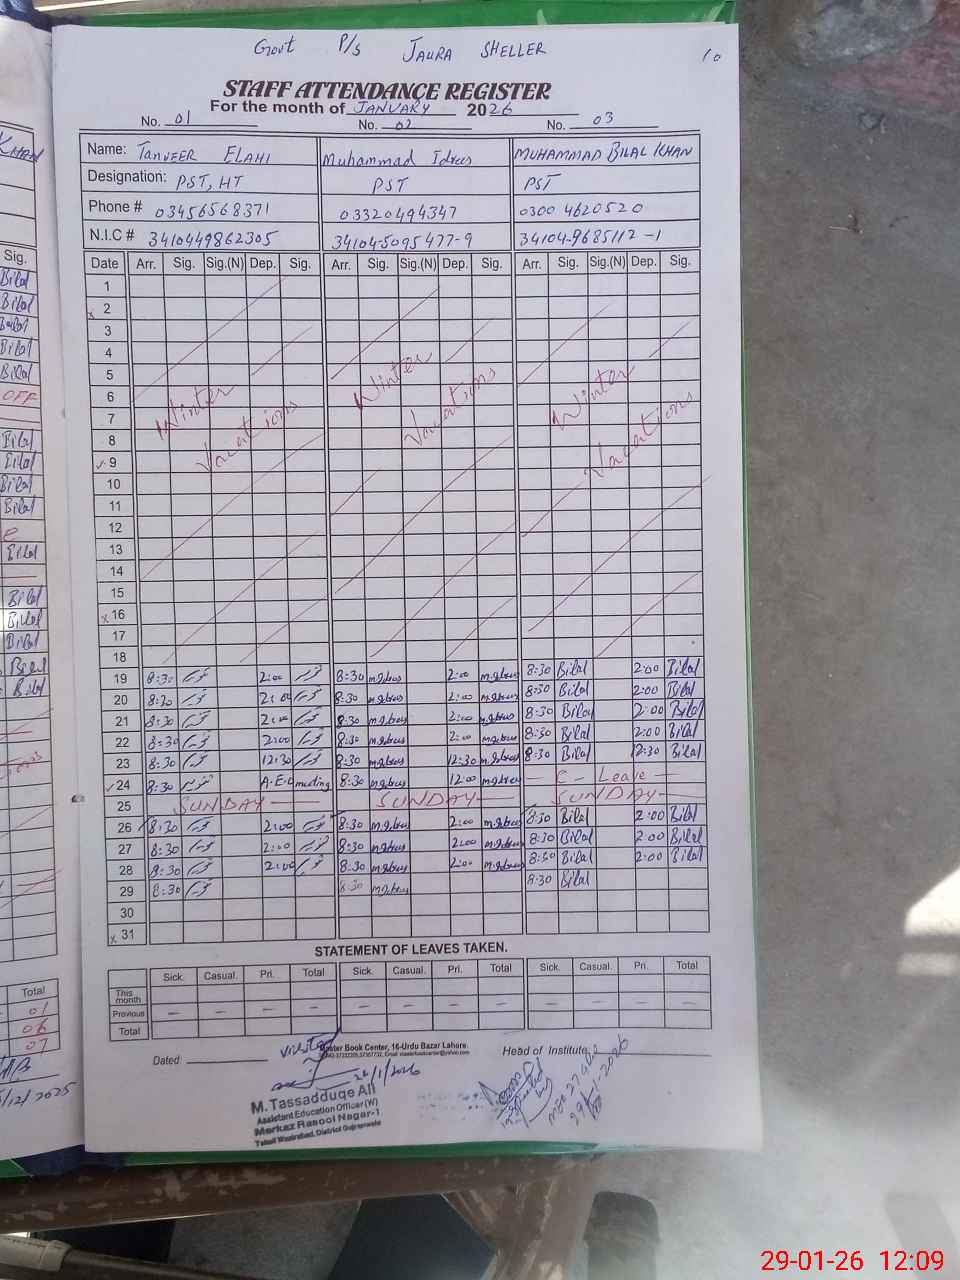 Govt P/s JAURA SHELLER 10
STAFF ATTENDANCE REGISTER
For the month of JANUARY 2026
No. 01 No. 02 No. 03
Name: TANVEER ELAHI Muhammad Idrees MUHAMMAD BILAL KHAN
Designation: PST, HT PST PST
Phone # 03456568371 03320494347 0300 4620520
N.I.C # 3410449862305 34104-5095477-9 34104-9685112-1
Date Arr. Sig. Sig.(N) Dep. Sig. Arr. Sig. Sig.(N) Dep. Sig. Arr. Sig. Sig.(N) Dep. Sig.
1
x 2
3
4
5
6
7
8
✓ 9
10
11
12
13
14
15
x 16
17
18
Winter Vacations Winter Vacations Winter Vacations
19 8:30 2:00 8:30 m.Idrees 2:00 m.Idrees 8:30 Bilal 2:00 Bilal
20 8:30 2:00 8:30 m.Idrees 2:00 m.Idrees 8:30 Bilal 2:00 Bilal
21 8:30 2:00 8:30 m.Idrees 2:00 m.Idrees 8:30 Bilal 2:00 Bilal
22 8:30 2:00 8:30 m.Idrees 2:00 m.Idrees 8:30 Bilal 2:00 Bilal
23 8:30 12:30 8:30 m.Idrees 12:30 m.Idrees 8:30 Bilal 12:30 Bilal
✓ 24 8:30 A.E.O meeting 8:30 m.Idrees 12:00 m.Idrees C - Leave
25 SUNDAY SUNDAY SUNDAY
26 8:30 2:00 8:30 m.Idrees 2:00 m.Idrees 8:30 Bilal 2:00 Bilal
27 8:30 2:00 8:30 m.Idrees 2:00 m.Idrees 8:30 Bilal 2:00 Bilal
28 8:30 2:00 8:30 m.Idrees 2:00 m.Idrees 8:30 Bilal 2:00 Bilal
29 8:30 8:30 m.Idrees 8:30 Bilal
30
x 31
STATEMENT OF LEAVES TAKEN.
Sick. Casual. Pri. Total Sick. Casual. Pri. Total Sick. Casual. Pri. Total
This month
Previous — — — — — — — — — — — —
Total
Dated: Master Book Center, 16-Urdu Bazar Lahore. Head of Institute:
Visited
/1/2026
M. Tassadduqe Ali
Assistant Education Officer (W)
Markaz Rasool Nagar-1
Tehsil Wazirabad, District Gujranwala
29/1/2026
KHAN
Sig.
Bilal
Bilal
Bilal
Bilal
Bilal
OFF
Bilal
Bilal
Bilal
Bilal
Bilal
Bilal
Bilal
Bilal
Bilal
Bilal
Total
01
06
07
/12/2025
29-01-26 12:09